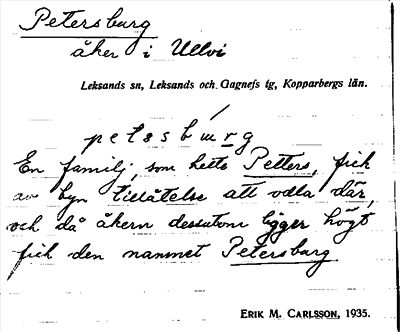 Petersburg
åker i Ullvi
Leksands sn, Leksands och Gagnefs tg, Kopparbergs län.
petǝsbu̶rg
En familj, som heets Petters, fick
av byn tillåtelse att odla där,
och då åkern dessutom ligger högt
fick den namnet Petersburg
ERIK M. CARLSSON, 1935.